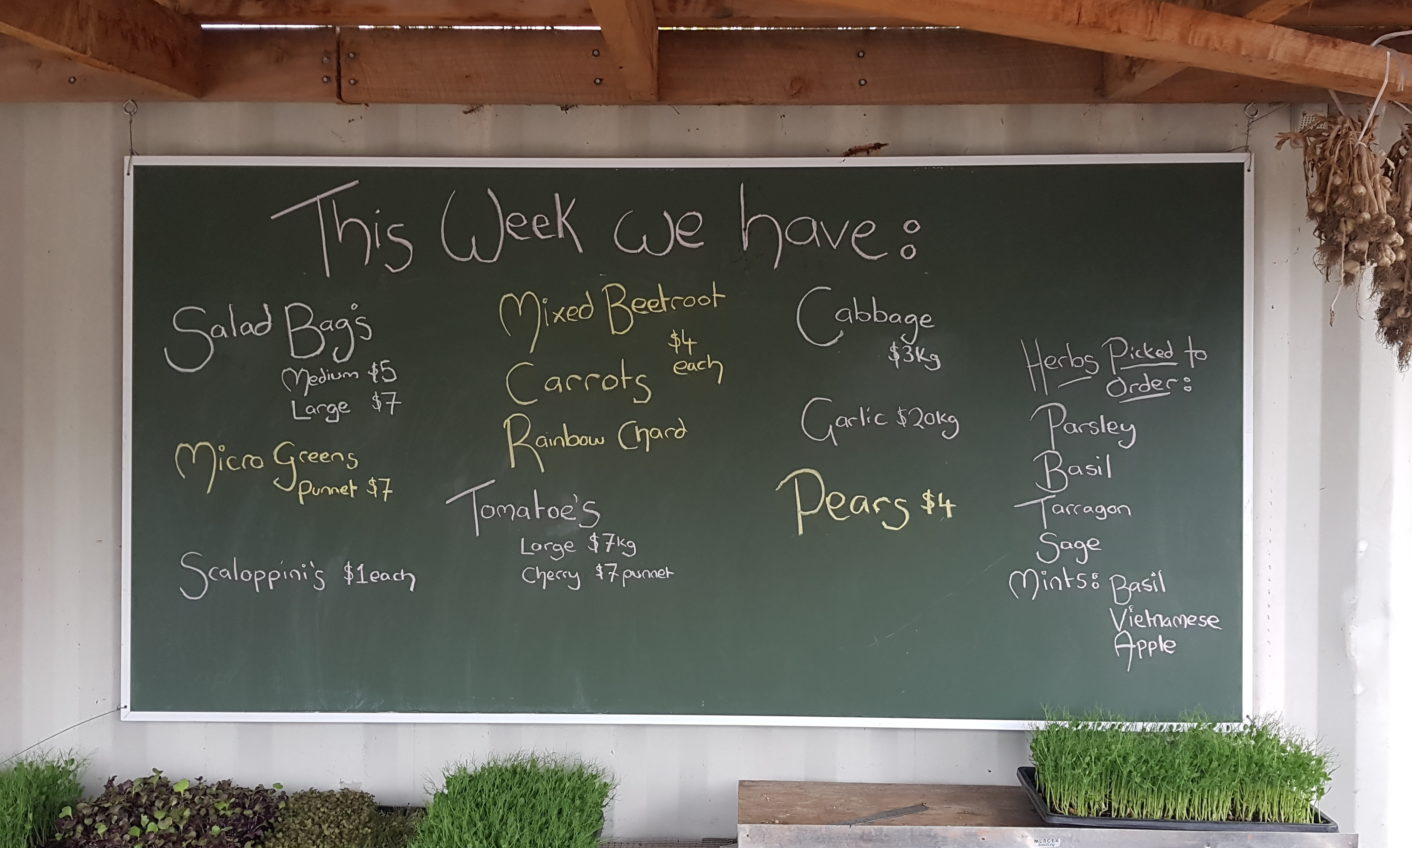 This Week we have:
Salad Bag's
Medium $5
Large $7
Micro Greens
punnet $7
Scaloppini's $1each
Mixed Beetroot
$4
each
Carrots
Rainbow Chard
Tomatoe's
Large $7kg
Cherry $7punnet
Cabbage
$3kg
Garlic $20kg
Pears $4
Herbs Picked to
Order:
Parsley
Basil
Tarragon
Sage
Mints: Basil
Vietnamese
Apple